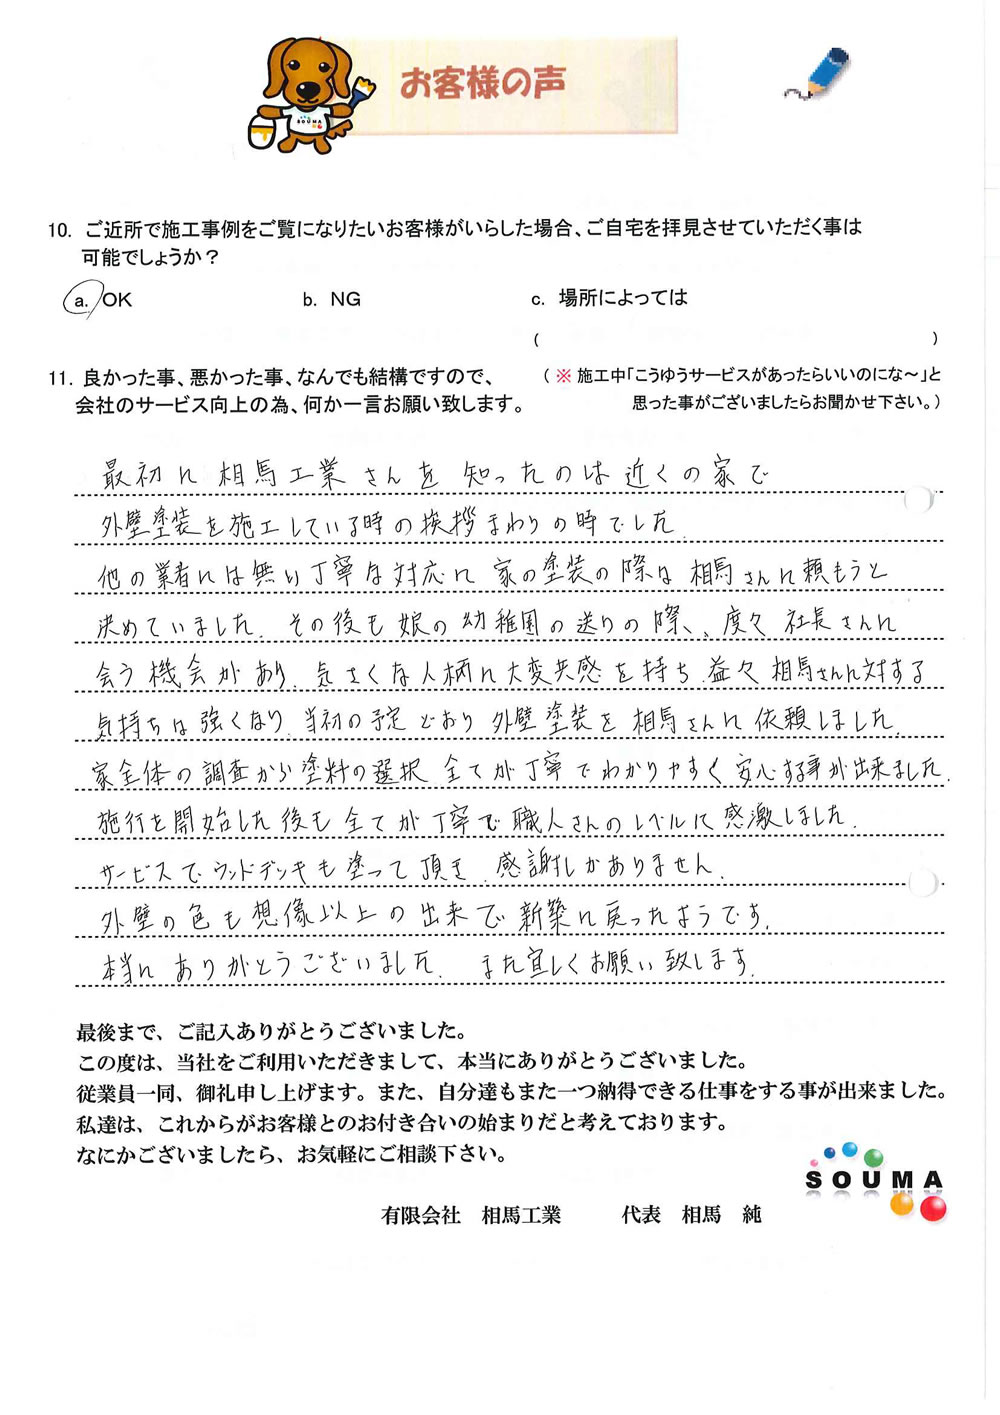 お客様の声
SOUMA
10. ご近所で施工事例をご覧になりたいお客様がいらした場合、ご自宅を拝見させていただく事は
可能でしょうか？
a. OK b. NG c. 場所によっては
( )
11. 良かった事、悪かった事、なんでも結構ですので、 （ ※ 施工中「こうゆうサービスがあったらいいのにな～」と
会社のサービス向上の為、何か一言お願い致します。 思った事がございましたらお聞かせ下さい。）
最初に相馬工業さんを知ったのは近くの家で
外壁塗装を施工している時の挨拶まわりの時でした.
他の業者には無い丁寧な対応に家の塗装の際は相馬さんに頼もうと
決めていました. その後も娘の幼稚園の送りの際、度々社長さんに
会う機会があり. 気さくな人柄に大変共感を持ち.益々相馬さんに対する
気持ちは強くなり.当初の予定どおり外壁塗装を相馬さんに依頼しました.
家全体の調査から塗料の選択.全てが丁寧でわかりやすく安心する事が出来ました.
施行を開始した後も全てが丁寧で職人さんのレベルに感激しました.
サービスでウッドデッキも塗って頂き.感謝しかありません.
外壁の色も想像以上の出来で新築に戻ったようです.
本当にありがとうございました. また宜しくお願い致します.
最後まで、ご記入ありがとうございました。
この度は、当社をご利用いただきまして、本当にありがとうございました。
従業員一同、御礼申し上げます。また、自分達もまた一つ納得できる仕事をする事が出来ました。
私達は、これからがお客様とのお付き合いの始まりだと考えております。
なにかございましたら、お気軽にご相談下さい。
SOUMA
有限会社 相馬工業 代表 相馬 純